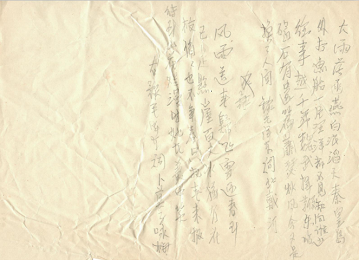 大雨落幽燕白浪滔天秦皇島
外打魚船一片汪洋都不見知向誰边
往事越千年魏武揮鞭东临
碣石有遺篇萧瑟秋风今又是
換了人間
风雨送春归飞雪迎春到
已是悬崖百丈冰犹有花
枝俏俏也不争春只把春来报
待到山花烂漫时她在丛中笑
词卜算子咏梅